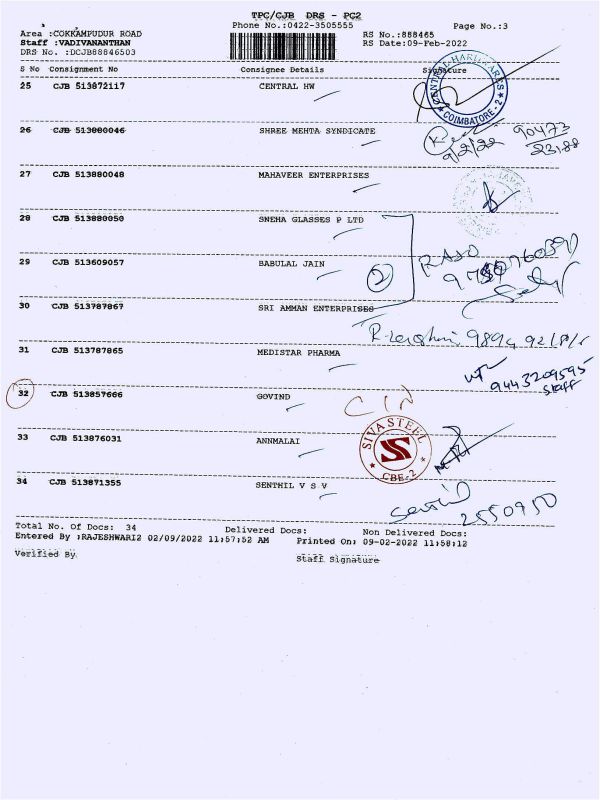 TPC/CJB DRS - PG2
Phone No.:0422-3505555
Page No.:3
Area :COKKAMPUDUR ROAD
RS No.:888465
Staff :VADIVANANTHAN
RS Date:09-Feb-2022
DRS No. :DCJB88846503
S No Consignment No Consignee Details Signature
25 CJB 513872117 CENTRAL HW
CENTRAL HARDWARES
COIMBATORE - 2
26 CJB 513880046 SHREE MEHTA SYNDICATE
90473
9/2/22 23188
27 CJB 513880048 MAHAVEER ENTERPRISES
28 CJB 513880050 SNEHA GLASSES P LTD
29 CJB 513609057 BABULAL JAIN
2
30 CJB 513787867 SRI AMMAN ENTERPRISES
31 CJB 513787865 MEDISTAR PHARMA
9443209595
Staff
32 CJB 513857666 GOVIND
33 CJB 513876031 ANNMALAI
SIVA STEEL
CBE-2
34 CJB 513871355 SENTHIL V S V
2550950
Total No. Of Docs: 34 Delivered Docs: Non Delivered Docs:
Entered By :RAJESHWARI2 02/09/2022 11:57:52 AM Printed On: 09-02-2022 11:58:12
Verified By Staff Signature